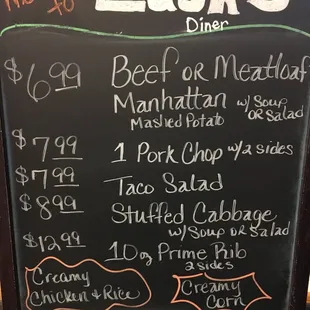 Diner
$6.99 Beef or Meatloaf
Manhattan w/ Soup or Salad
Mashed Potato
$7.99 1 Pork Chop w/2 sides
$7.99 Taco Salad
$8.99 Stuffed Cabbage
w/Soup or Salad
$12.99 10oz Prime Rib
2 sides
Creamy
Chicken & Rice
Creamy
Corn